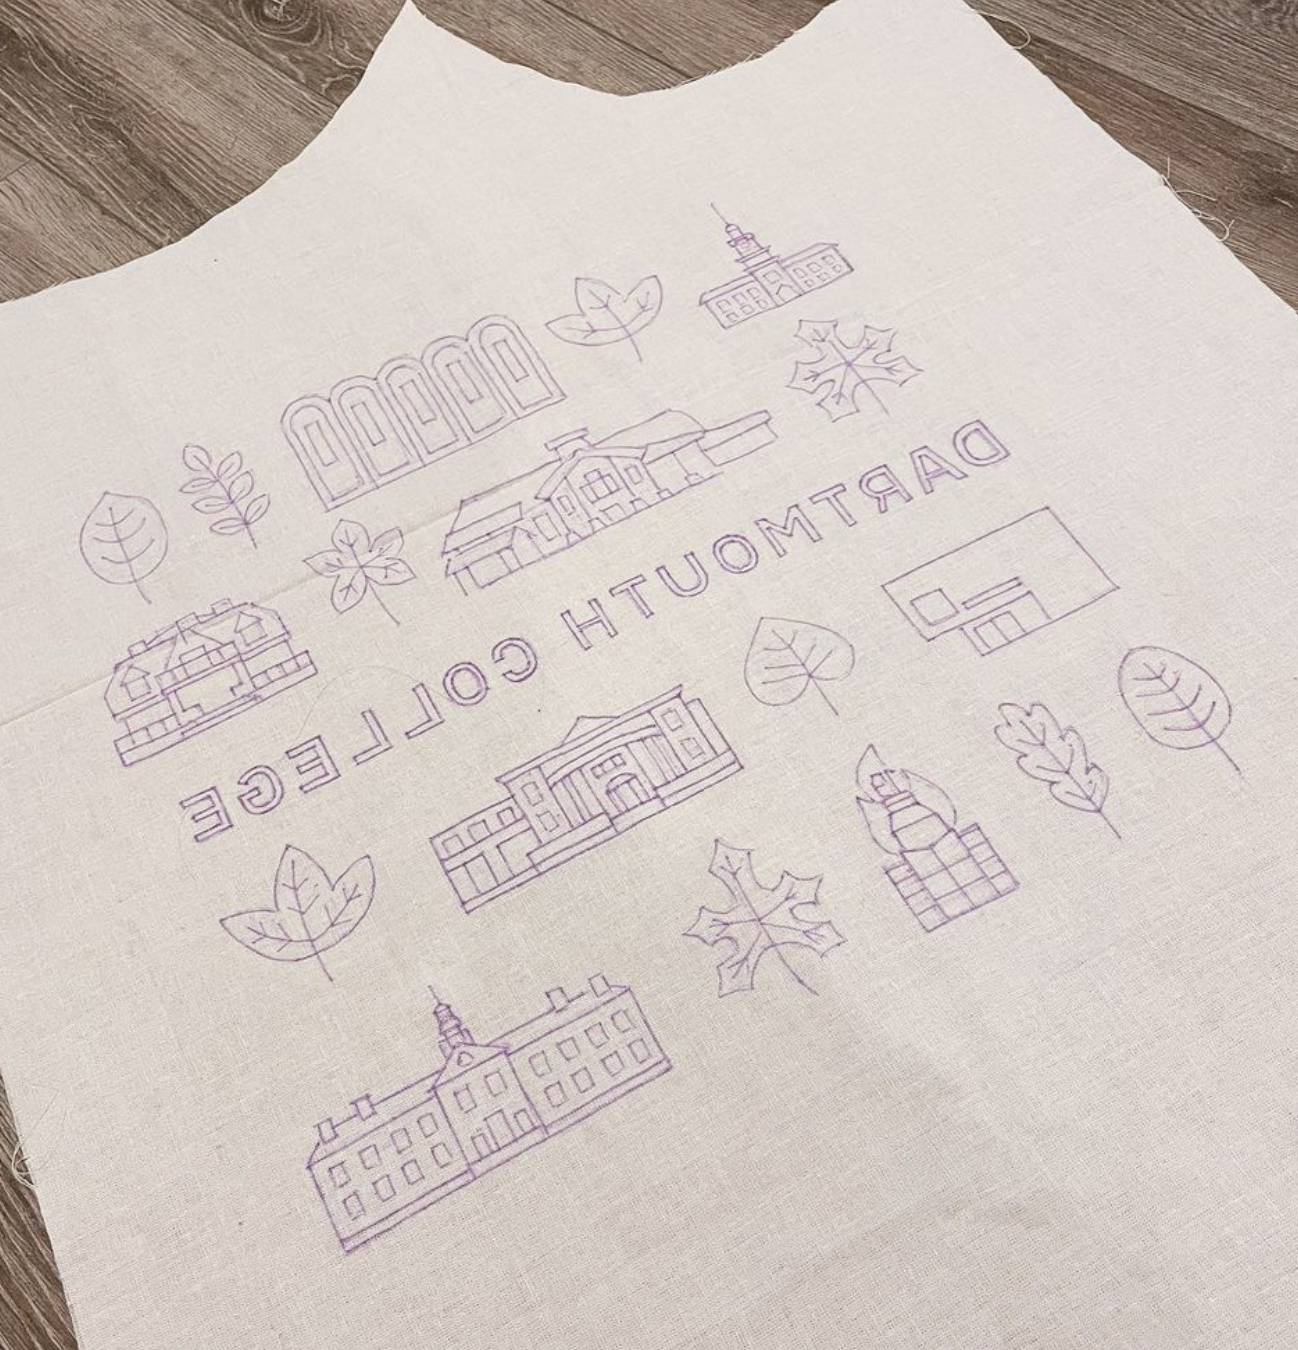 DARTMOUTH COLLEGE